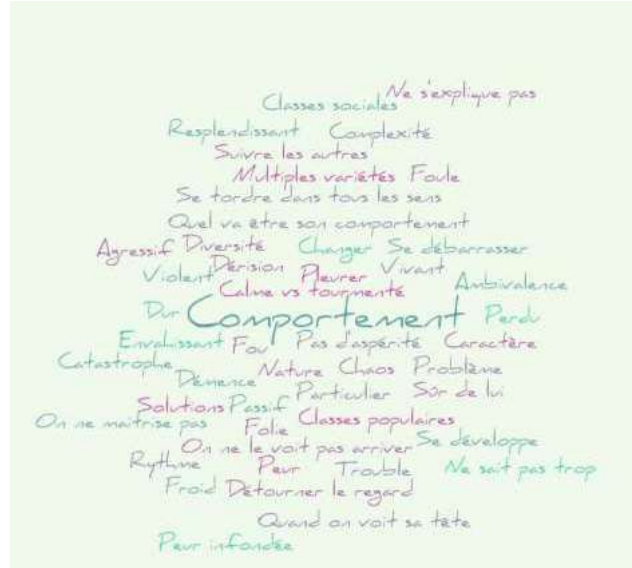 Ne s'explique pas
Classes sociales
Resplendissant Complexité
Suivre les autres
Multiples variétés Foule
Se tordre dans tous les sens
Quel va être son comportement
Agressif Diversité Changer Se débarrasser
Violent Dérision Pleurer Vivant Ambivalence
Calme vs tourmenté
Dur Comportement Perdu
Envahissant Fou Pas d'aspérité Caractère
Catastrophe Nature Chaos Problème
Démence Particulier Sûr de lui
Solutions Passif
On ne maîtrise pas Folie Classes populaires
On ne le voit pas arriver Se développe
Rythme Peur Trouble Ne sait pas trop
Froid Détourner le regard
Quand on voit sa tête
Peur infondée